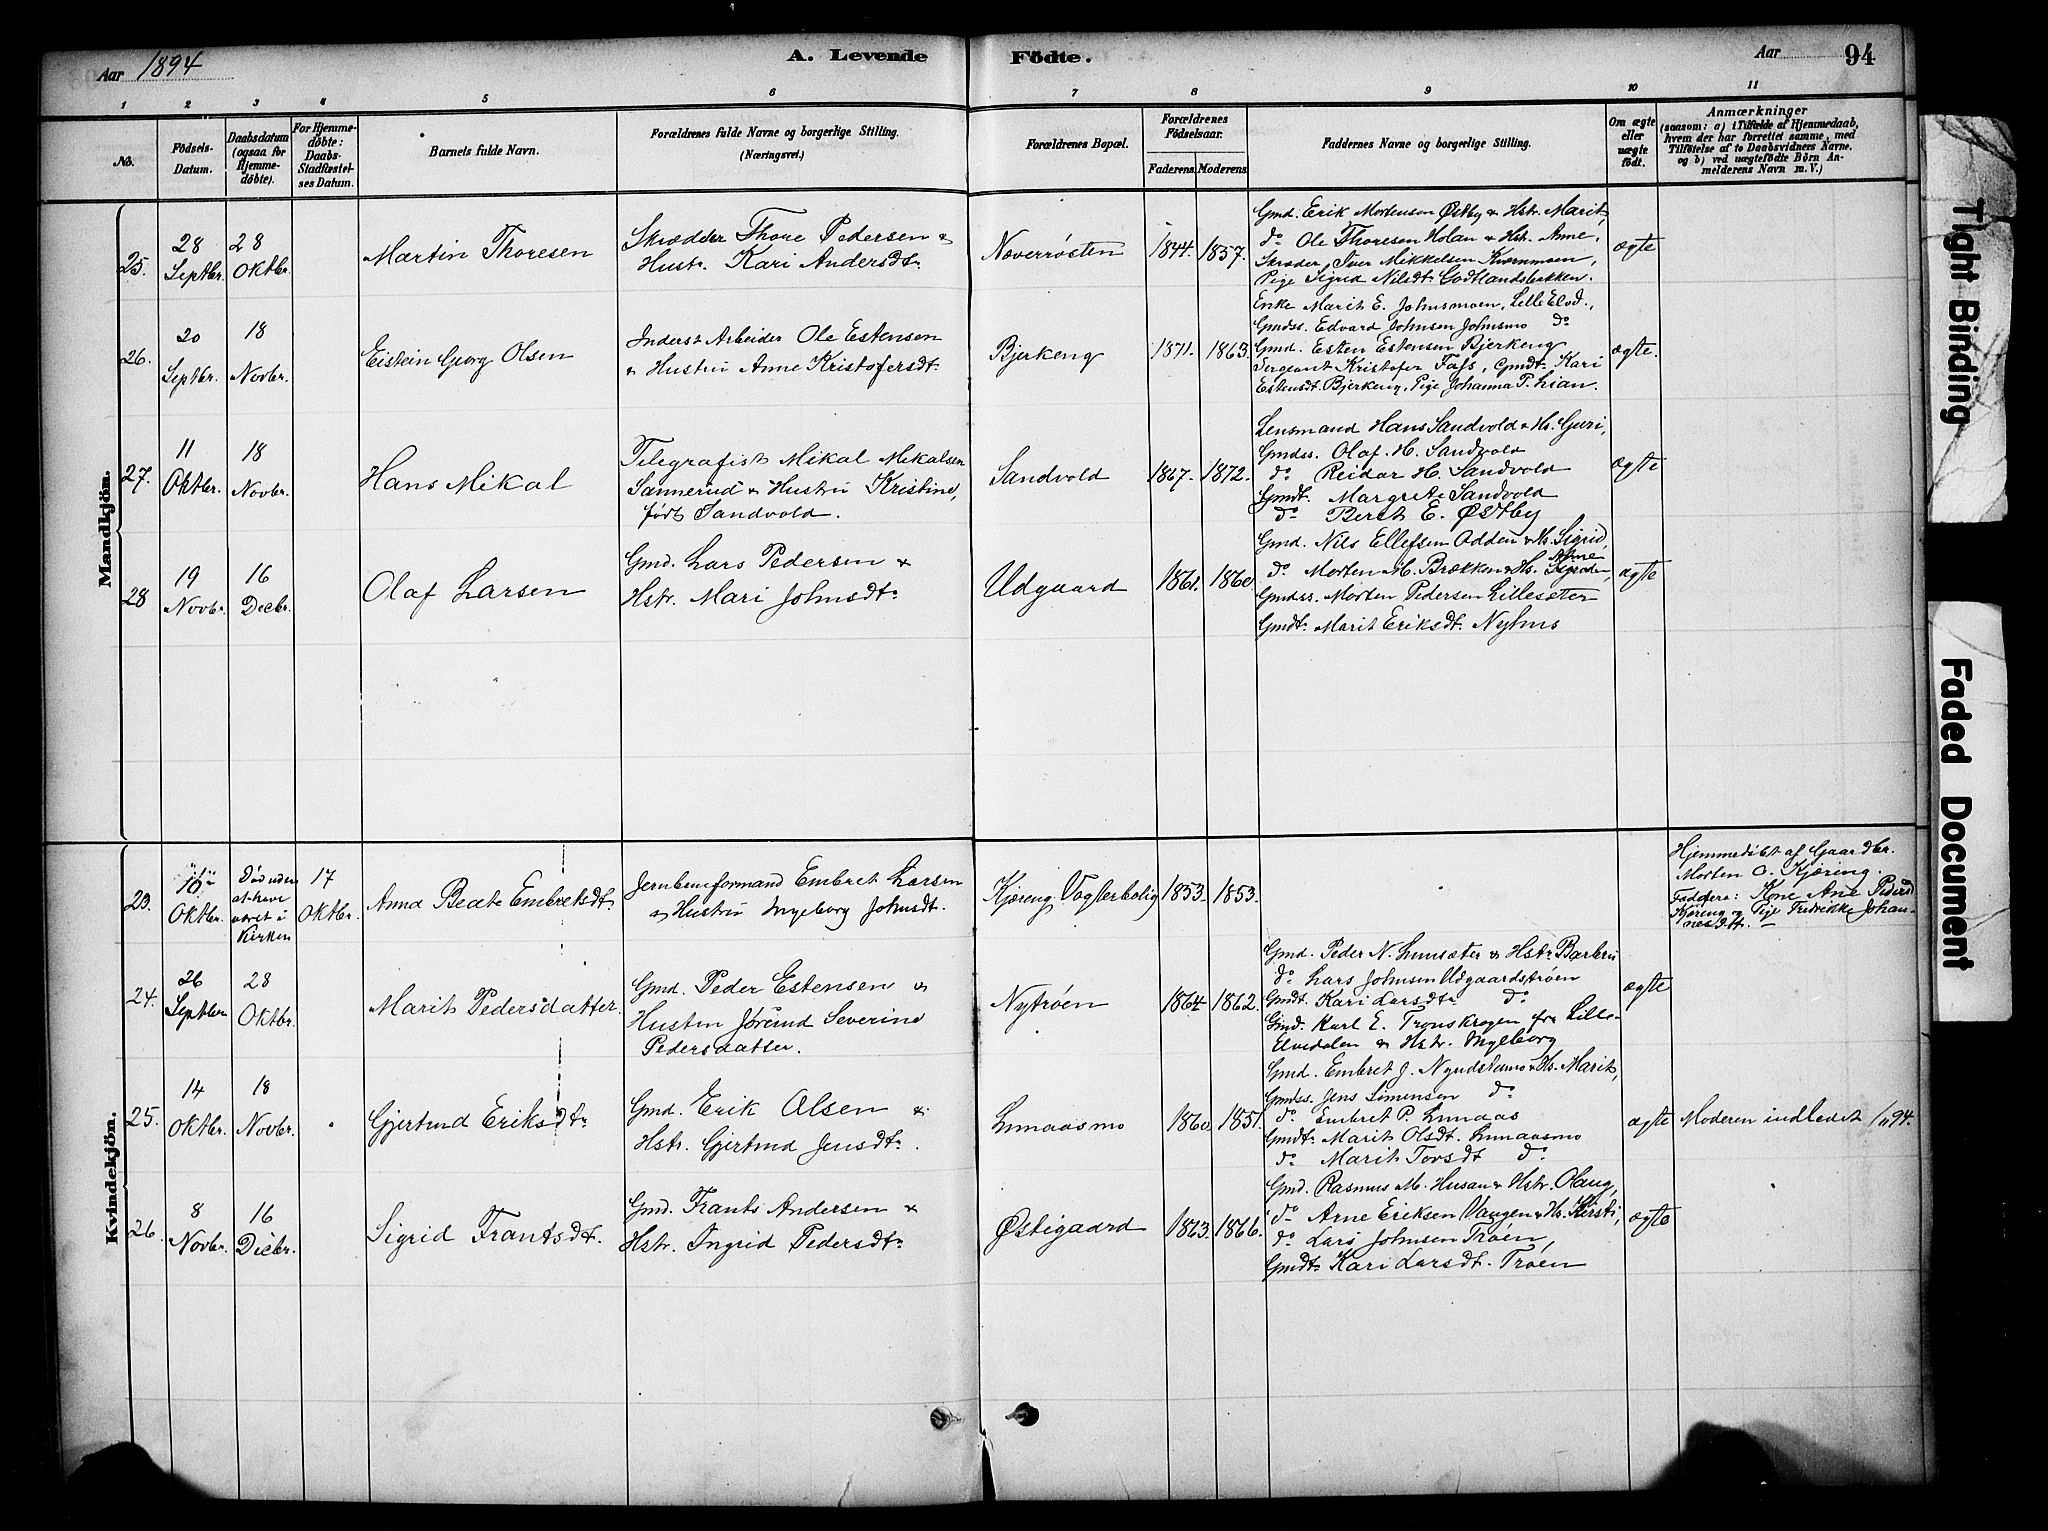 Aar 1894
A. Levende
Födte.
Aar
94
1 2 3 4 5 6 7 8 9 10 11
No.
Födsels-
Datum.
Daabsdatum
(ogsaa for
Hjemme-
døbte).
For Hjemme-
døbte:
Daabs-
Stadfæstel-
ses Datum.
Barnets fulde Navn.
Forældrenes fulde Navne og borgerlige Stilling.
(Næringsvei.)
Forældrenes Bopæl.
Forældrenes
Födselsaar.
Faderens. Moderens.
Faddernes Navne og borgerlige Stilling.
Om ægte
eller
uægte
født.
Anmærkninger
(saasom: a) i Tilfælde af Hjemmedaab,
hvem der har forrettet samme, med
Tilføielse af to Daabsvidners Navne,
og b) ved uægtefødte Börn An-
melderens Navn m. V.)
Mandkjön.
25.
28
Septbr.
28
Oktbr.
Martin Thoresen
Skrædder Thore Pedersen &
Hustr. Kari Andersdtr.
Noverrøsten
1844. 1857.
Gmd. Erik Mortensen Østby & Hstr. Marit,
do Ole Thoresen Holan & Hstr. Anne.
Skræder Iver Mikkelsen
Pige Sigrid Nilsdtr. Godtlandsbakken.
ægte
26.
20
Septbr.
18
Novbr.
Eistein Georg Olsen
Inderst Arbeider Ole Estensen
& Hustru Anne Kristofersdtr.
Bjerkeng
1871. 1863.
Enke Marit E. Johnsmoen, Lille Elvd.,
Gmdss. Edvard Johnsen Johnsmo do
Gmd. Esten Estensen Bjerkeng
Sergeant Kristofer Fass, Gmdtr. Kari
Estensdt. Bjerkeng, Pige Johanna P. Lian.
ægte.
27.
11
Oktbr.
18
Novbr.
Hans Mikal
Telegrafist Mikal Mikalsen
Sannerud & Hustru Kristine,
født Sandvold.
Sandvold
1867. 1872.
Lensmand Hans Sandvold & Hs. Guri,
Gmdss. Olaf H. Sandvold
do Reidar H. Sandvold
Gmdt. Margrete Sandvold
do Berit E. Østby
ægte
28
19
Novbr.
16
Decbr.
Olaf Larsen
Gmd. Lars Pedersen &
Hstr. Mari Johnsdtr.
Udgaard
1861. 1860
Gmd. Nils Ellefsen Odden & Hs. Sigrid,
do Morten M. Brækken & Hs. Anne
Gmdss. Morten Pedersen Lillesæter
Gmdtr. Marit Eriksdt. Nyhus
ægte
Kvindekjön.
23.
16
Oktbr.
Død uden
at have
været i
Kirken
17
Oktbr.
Anna Beate Embretsdt.
Jernbaneformand Embret Larsen
& Hustru Ingeborg Johnsdt.
Kjæreng Vogterbolig
1853. 1853.
Hjemmedøbt af Gaardbr.
Morten O. Kjæring.
Faddere: Kone Ane Pedersd
Kjæreng og Pige Fredrikke Johan-
nesdtr.
24.
26
Septbr
28
Oktbr.
Marit Pedersdatter.
Gmd. Peder Estensen &
Hustru Jørund Severine
Pedersdatter.
Nytrøen
1864 1862.
Gmd. Peder N. Lunsæter & Hstr. Barbru
do Lars Johnsen Udgaardstrøen
Gmdt. Kari Larsdtr do
Gmd. Karl E. Tronskragen fra Lille-
Elvedalen & Hstr. Ingeborg
ægte
25.
14
Oktbr.
18
Novbr.
Gjertrud Eriksdtr
Gmd. Erik Olsen &
Hstr. Gjertrud Jensdtr.
Lunaasmo
1860. 1851.
Gmd. Embret J. Nyrudstumo & Hs. Marit,
Gmdss. Jens Simensen do
do Embret P. Lunaas
Gmdtr Marit Olsdt. Lunaasmo
do Marit Torsdt do
ægte
Moderen indledet
26.
8
Novbr.
16
Decbr.
Sigrid Frantsdt.
Gmd. Frants Andersen &
Hstr. Ingrid Pedersdtr
Østigaard
1863. 1866.
Gmd. Rasmus M. Husan & Hstr. Olaug,
do Arne Eriksen Vangen & Hs. Kirsti,
do Lars Johnsen Trøen,
Gmdtr Kari Larsdt. Trøen
ægte
Tight Binding
Faded Document